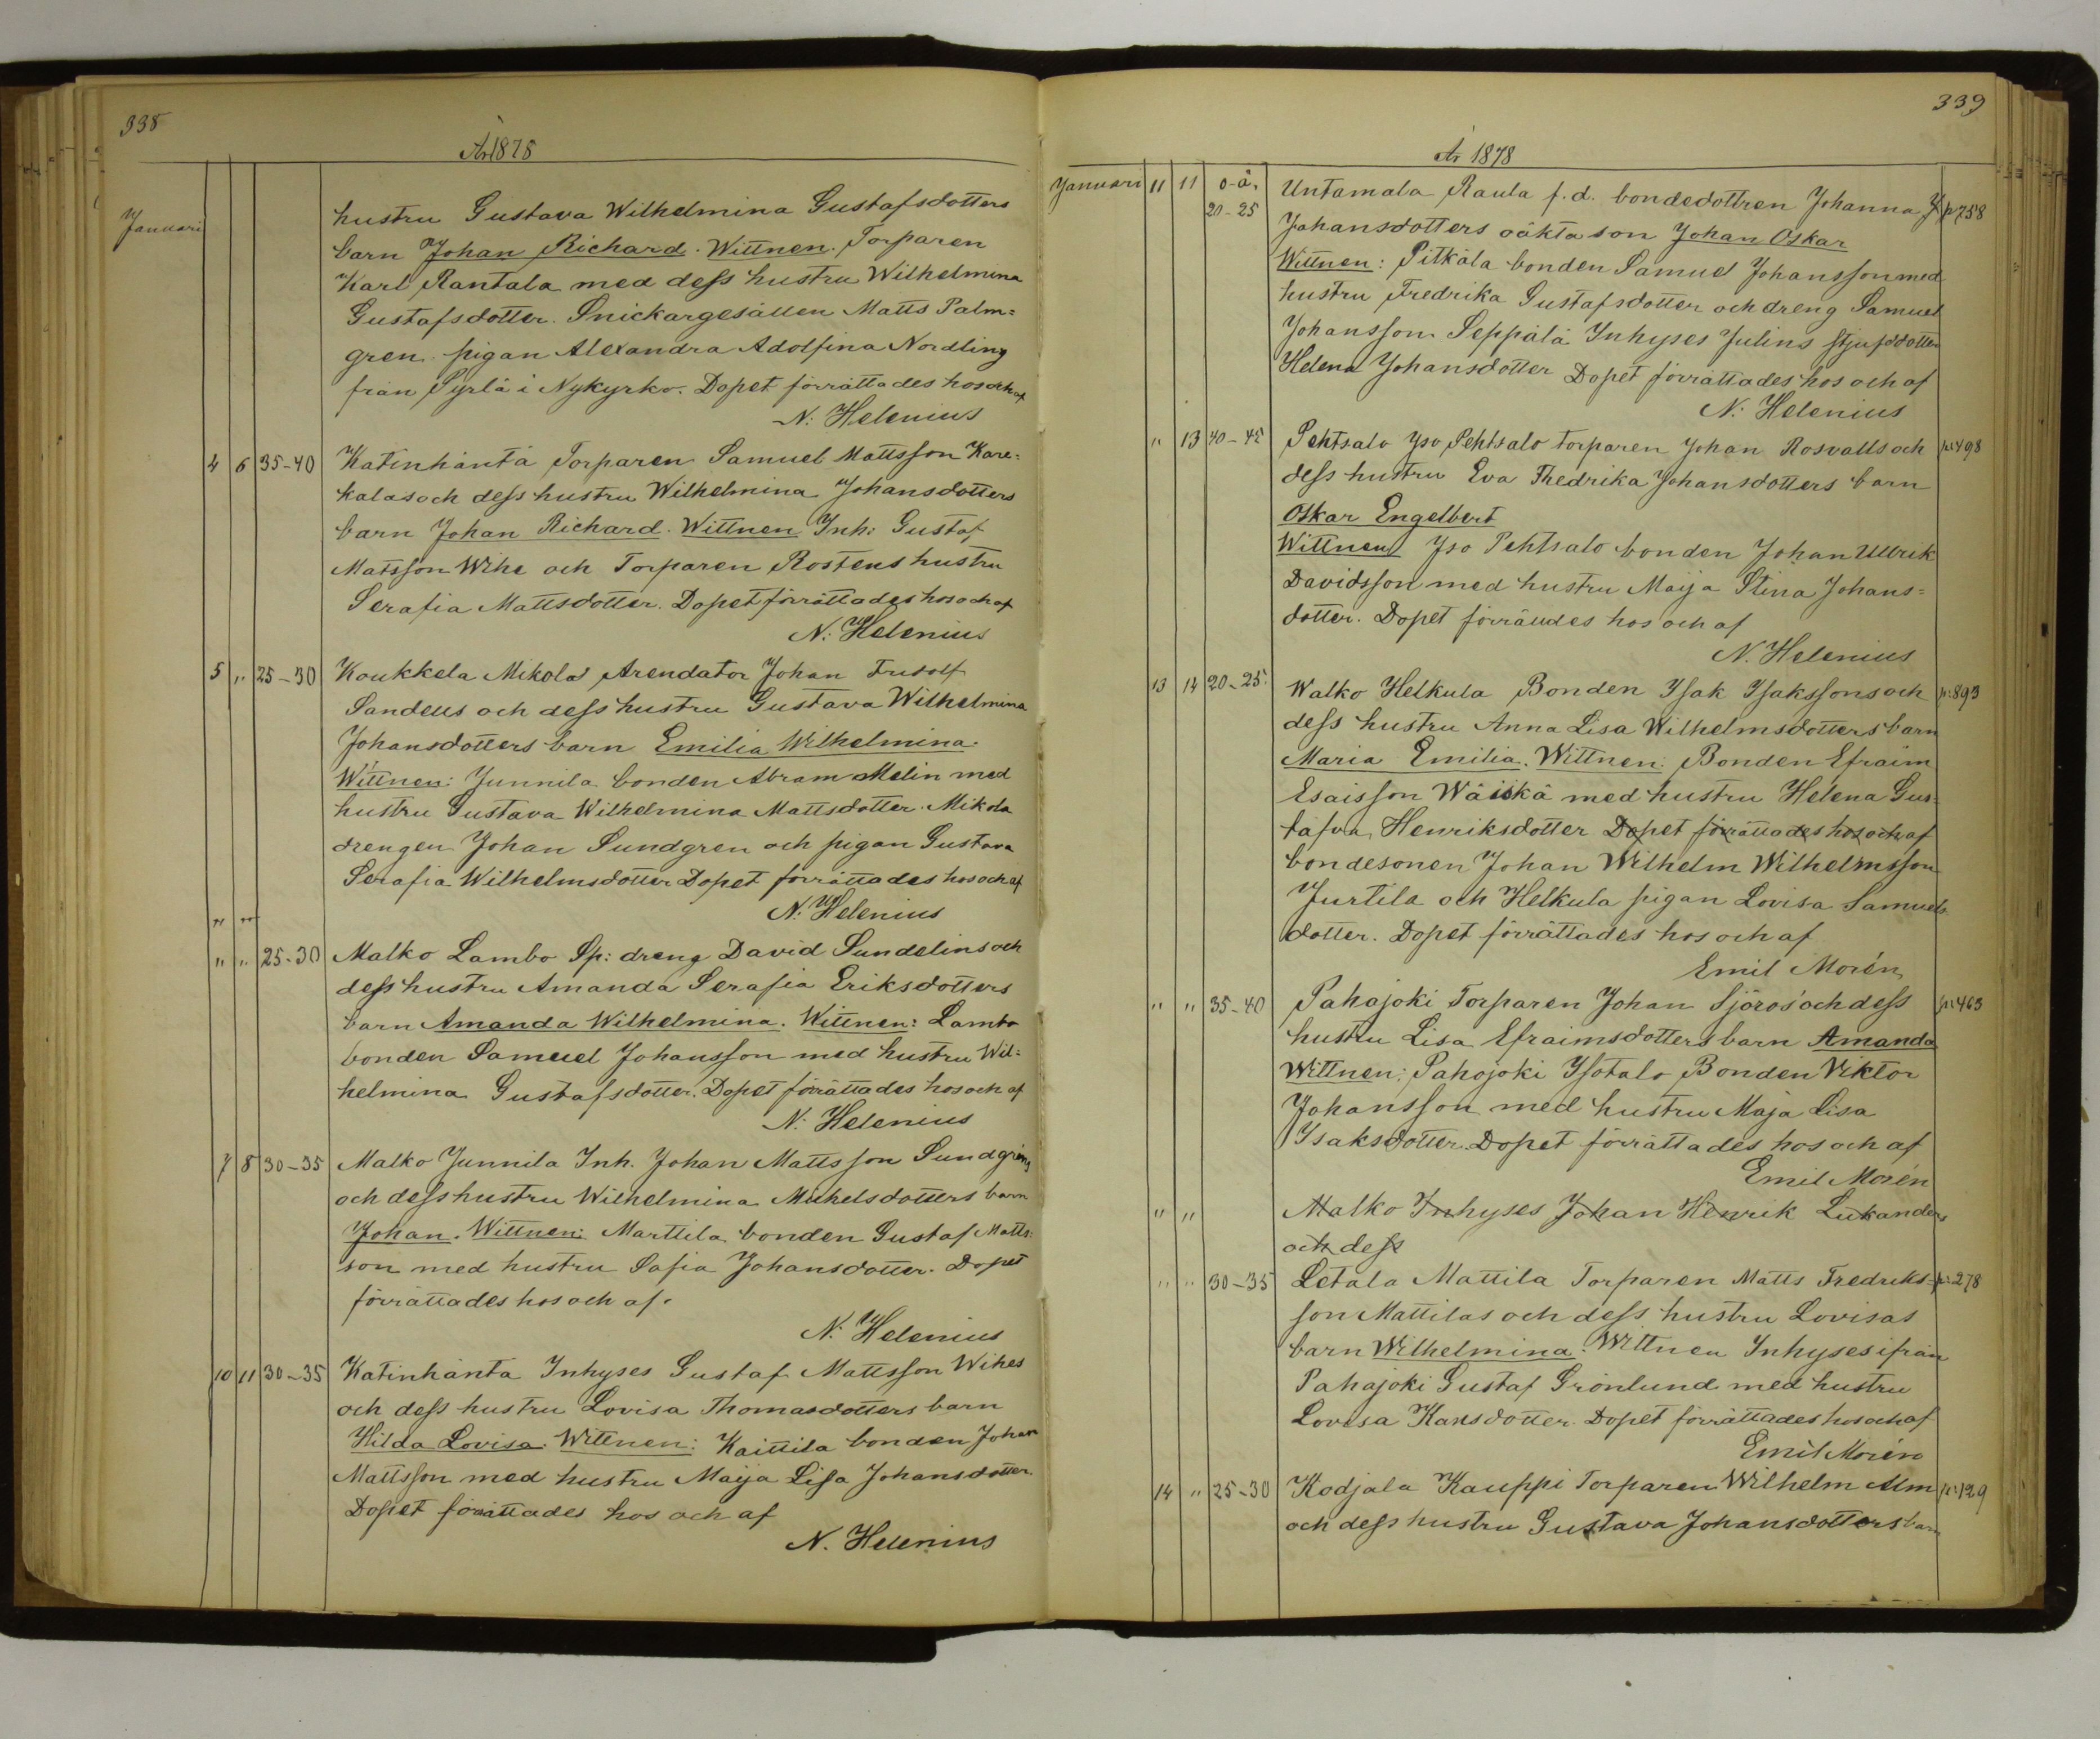 338
År 1878
Januari
hustru Gustava Wilhelmina Gustafsdotters
barn Johan Richard. Wittnen. Torparen
Karl Rantala med dess hustru Wilhelmina
Gustafsdotter. Snickargesällen Matts Palm=
gren. pigan Alexandra Adolfina Nordling
från Syrlä i Nykyrko. Dopet förrättades hos och af
N: Helenius
4 6 35-40 Katinhäntä Torparen Samuel Mattsson Kare=
kalas och dess hustru Wilhelmina Johansdotters
barn Johan Richard. Wittnen Inh: Gustaf
Matsson Wihe och Torparen Rostens hustru
Serafia Mattsdotter. Dopet förrättades hos och af
N: Helenius
5 " 25-30 Koukkela Mikola Arendator Johan Fridolf
Sandells och dess hustru Gustava Wilhelmina
Johansdotters barn Emilia Wilhelmina.
Wittnen: Junnila bonden Abram Melin med
hustru Gustava Wilhelmina Mattsdotter. Mikola
drengen Johan Sundgren och pigan Gustava
Serafia Wilhelmsdotter Dopet förrättades hos och af
N: Helenius
" "
" " 25-30 Malko Lambo Sp: dreng David Sundelins och
dess hustru Amanda Serafia Eriksdotters
barn Amanda Wilhelmina. Wittnen: Lambo
bonden Samuel Johansson med hustru Wil=
helmina Gustafsdotter. Dopet förrättades hos och af
N: Helenius
7 8 30-35 Malko Junnila Inh. Johan Mattsson Sundgrens
och dess hustru Wilhelmina Michelsdotters barn
Johan. Wittnen: Marttila bonden Gustaf Matts=
son med hustru Safia Johansdotter. Dopet
förrättades hos och af.
N: Helenius
10 11 30-35 Katinhäntä Inhyses Gustaf Mattsson Wihes
och dess hustru Lovisa Thomasdotters barn
Hilda Lovisa. Wittnen: Kaittila bonden Johan
Mattsson med hustru Maija Lisa Johansdotter.
Dopet förrättades hos och af
N. Helenius
339
År 1878
Januari 11 11 o-ä. Untamala Raula f.d. bondedottren Johanna p 758
20-25 Johansdotters oäkta son Johan Oskar
Wittnen: Pitkäla bonden Samuel Johansson med
hustru Fredrika Gustafsdotter och dreng Samuel
Johansson Seppälä Inhyses Julins stjufdotter
Helena Johansdotter Dopet förrättades hos och af
N: Helenius
" 13 40-45 Pehtsalo Yso Pehtsalo torparen Johan Rosvalls och p: 498
dess hustru Eva Fredrika Johansdotters barn
Oskar Engelbert
Wittnen Yso Pehtsalo bonden Johan Ullrik
Davidsson med hustru Maija Stina Johans=
dotter. Dopet förrättades hos och af
N. Helenius
13 14 20-25. Walko Helkula Bonden Isak Isakssons och p: 893
dess hustru Anna Lisa Wilhelmsdotters barn
Maria Emilia. Wittnen: Bonden Efraim
Esaisson Wäiskä med hustru Helena Gus=
tafva Henriksdotter Dopet förrättades hos och af
bondesonen Johan Wilhelm Wilhelmsson
Jurtila och Helkula pigan Lovisa Samuels
dotter. Dopet förrättades hos och af
Emil Morén
" " 35-40 Pahajoki Torparen Johan Sjöros' och dess p: 463
hustru Lisa Efraimsdotters barn Amanda
Wittnen: Pahojoki Ysotalo Bonden Viktor
Johansson med hustru Maja Lisa
Isaksdotter. Dopet förrättades hos och af
Emil Morén
" " Malko Inhyses Johan Henrik Lukanders
och dess
" " 30-35 Letala Mattila Torparen Matts Fredriks= p: 278
son Mattilas och dess hustru Lovisas
barn Wilhelmina. Wittnen Inhyses ifrån
Pahajoki Gustaf Grönlund med hustru
Lovisa Karlsdotter. Dopet förrättades hos och af
Emil Morén
14 " 25-30 Kodjala Kauppi Torparen Wilhelm Alm p: 129
och dess hustru Gustava Johansdotters barn